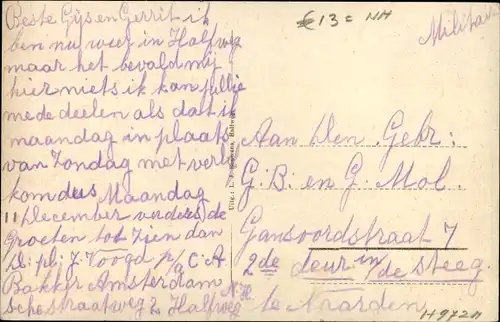 Beste Gijs en Gerrit ik
ben nu weer in Halfweg
maar het bevald mij
hier niets ik kan jullie
mede deelen als dat ik
maandag in plaats
van Zondag met verlof
kom dus Maandag
11 December verders de
Groeten tot Zien dan
D. pl: J. Voogd p/a C. A.
Bakker Amsterdam
sche straatweg 2 Halfweg N.H.
€ 13 = NH
Militair
Uitg.: L. J. Halfweg
Aan Den Gebr:
G. B. en G. Mol.
Gansoordstraat 7
2de deur in/de steeg
te Naarden
H972A